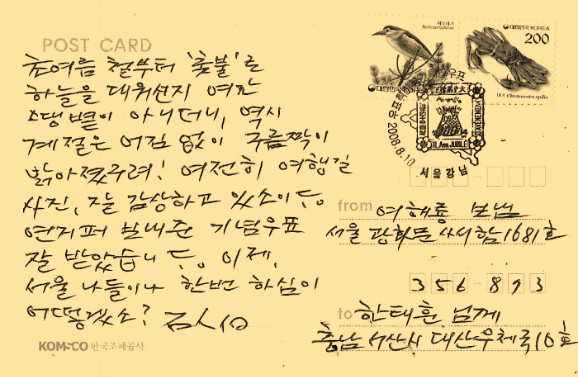 POST CARD
초여름 철부터 '촛불'로
하늘을 데워선지 여간
땡볕이 아니더니, 역시
계절은 어김 없이 구름짝이
맑아졌구려! 여전히 여행길
사진, 잘 감상하고 있소이다.
연지퍼 보내준 기념우표
잘 받았습니다. 이제,
서울 나들이나 한번 하심이
어떻겠소?
KOMSCO 한국조폐공사
대한민국 KOREA
200
2008.8.10
서울강남
from 여해룡 보냄
서울 광화문 사서함 1681호
356-893
to 한태훈 님께
충남 서산시 대산우체국 10호